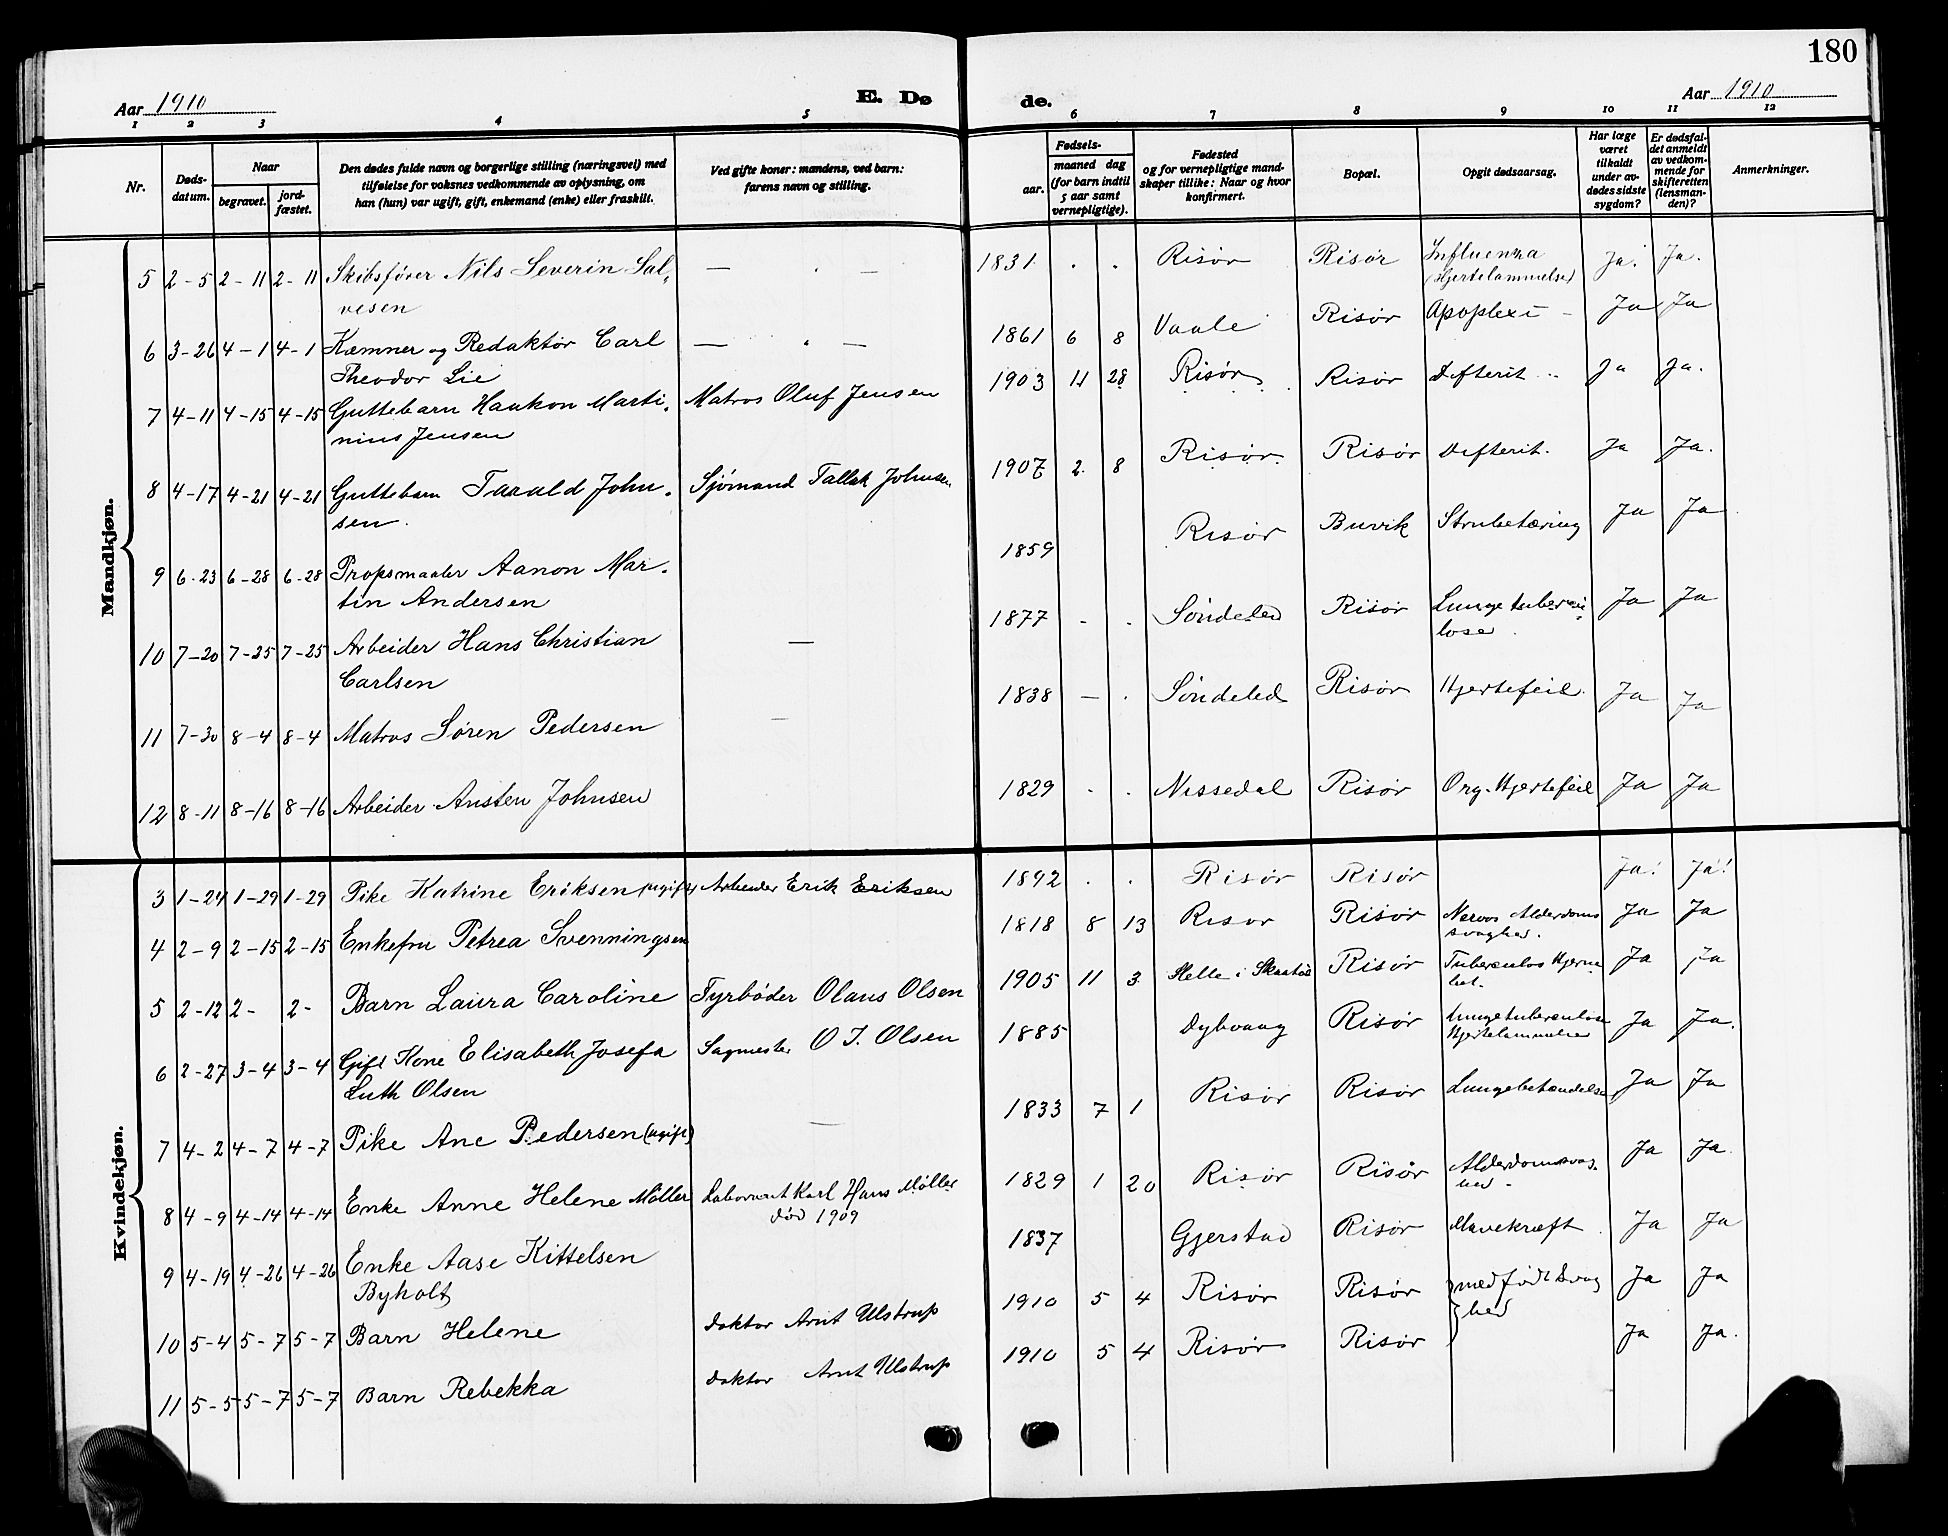 180
Aar 1910 E. Dø de. Aar 1910
1 2 3 4 5 6 7 8 9 10 11 12
Nr.
Døds-
datum.
Naar
begravet.
jord-
fæstet.
Den dødes fulde navn og borgerlige stilling (næringsvei) med
tilføielse for voksnes vedkommende av oplysning, om
han (hun) var ugift, gift, enkemand (enke) eller fraskilt.
Ved gifte koner: mandens, ved barn:
farens navn og stilling.
Fødsels-
aar.
maaned dag
(for barn indtil
5 aar samt
vernepligtige).
Fødested
og for vernepligtige mand-
skaper tillike: Naar og hvor
konfirmert.
Bopæl.
Opgit dødsaarsag.
Har læge
været
tilkaldt
under av-
dødes sidste
sygdom?
Er dødsfal-
det anmeldt
av vedkom-
mende for
skifteretten
(lensman-
den)?
Anmerkninger.
Mandkjøn.
5 2-5 2-11 2-11 Skibsfører Nils Severin Sal- — . — 1831 . . Risør Risør Influenza Ja. Ja.
vesen (Hjertelammelse)
6 3-26 4-1 4-1 Kæmner og Redaktør Carl — . — 1861 6 8 Vaale Risør Apoplexi - Ja Ja
Theodor Lie
7 4-11 4-15 4-15 Guttebarn Haakon Marti- Matros Oluf Jensen 1903 11 28 Risør Risør Difterit Ja Ja.
nius Jensen
8 4-17 4-21 4-21 Guttebarn Tarald John- Sjømand Tallak Johnsen 1907 2 8 Risør. Risør Difterit. Ja Ja.
sen.
9 6-23 6-28 6-28 Propsmaaler Aanon Mar- 1859 Risør Buvik Strubetæring Ja Ja
tin Andersen
10 7-20 7-25 7-25 Arbeider Hans Christian — 1877 - . Søndeled Risør Lungetubercu- Ja Ja
Carlsen lose.
11 7-30 8-4 8-4 Matros Søren Pedersen — 1838 — . Søndeled Risør Hjertefeil. Ja Ja
12 8-11 8-16 8-16 Arbeider Ansten Johnsen 1829 . . Nissedal Risør Org. Hjertefeil Ja Ja
Kvindekjøn.
3 1-24 1-29 1-29 Pike Katrine Eriksen (ugift) Arbeider Erik Eriksen 1892 . . Risør Risør Ja! Ja!
4 2-9 2-15 2-15 Enkefru Petrea Svenningsen 1818 8 13 Risør Risør Nervøs Alderdoms Ja Ja
svaghed.
5 2-12 2- 2- Barn Laura Caroline Fyrbøder Olaus Olsen 1905 11 3 Helle i Skaatøi Risør Tuberculøs Hjerne Ja Ja
bet.
6 2-27 3-4 3-4 Gift Kone Elisabeth Josefa Sagmester O J. Olsen 1885 Dybvaag Risør Lungetuberculose Ja Ja.
Luth Olsen Hjertelammelse
7 4-2 4-7 4-7 Pike Ane Pedersen (ugift) — 1833 7 1 Risør Risør Lungebetændelse Ja Ja
8 4-9 4-14 4-14 Enke Anne Helene Møller Laborant Karl Hans Møller 1829 1 20 Risør Risør Alderdomssvag- Ja Ja.
død 1909 hed.
9 4-19 4-26 4-26 Enke Aase Kittelsen 1837 Gjerstad Risør Mavekræft. Ja Ja
Byholt
10 5-4 5-7 5-7 Barn Helene doktor Arnt Ulstrup 1910 5 4 Risør Risør medfødt svag Ja Ja
hed
11 5-5 5-7 5-7 Barn Rebekka doktor Arnt Ulstrup 1910 5 4 Risør Risør Ja Ja.